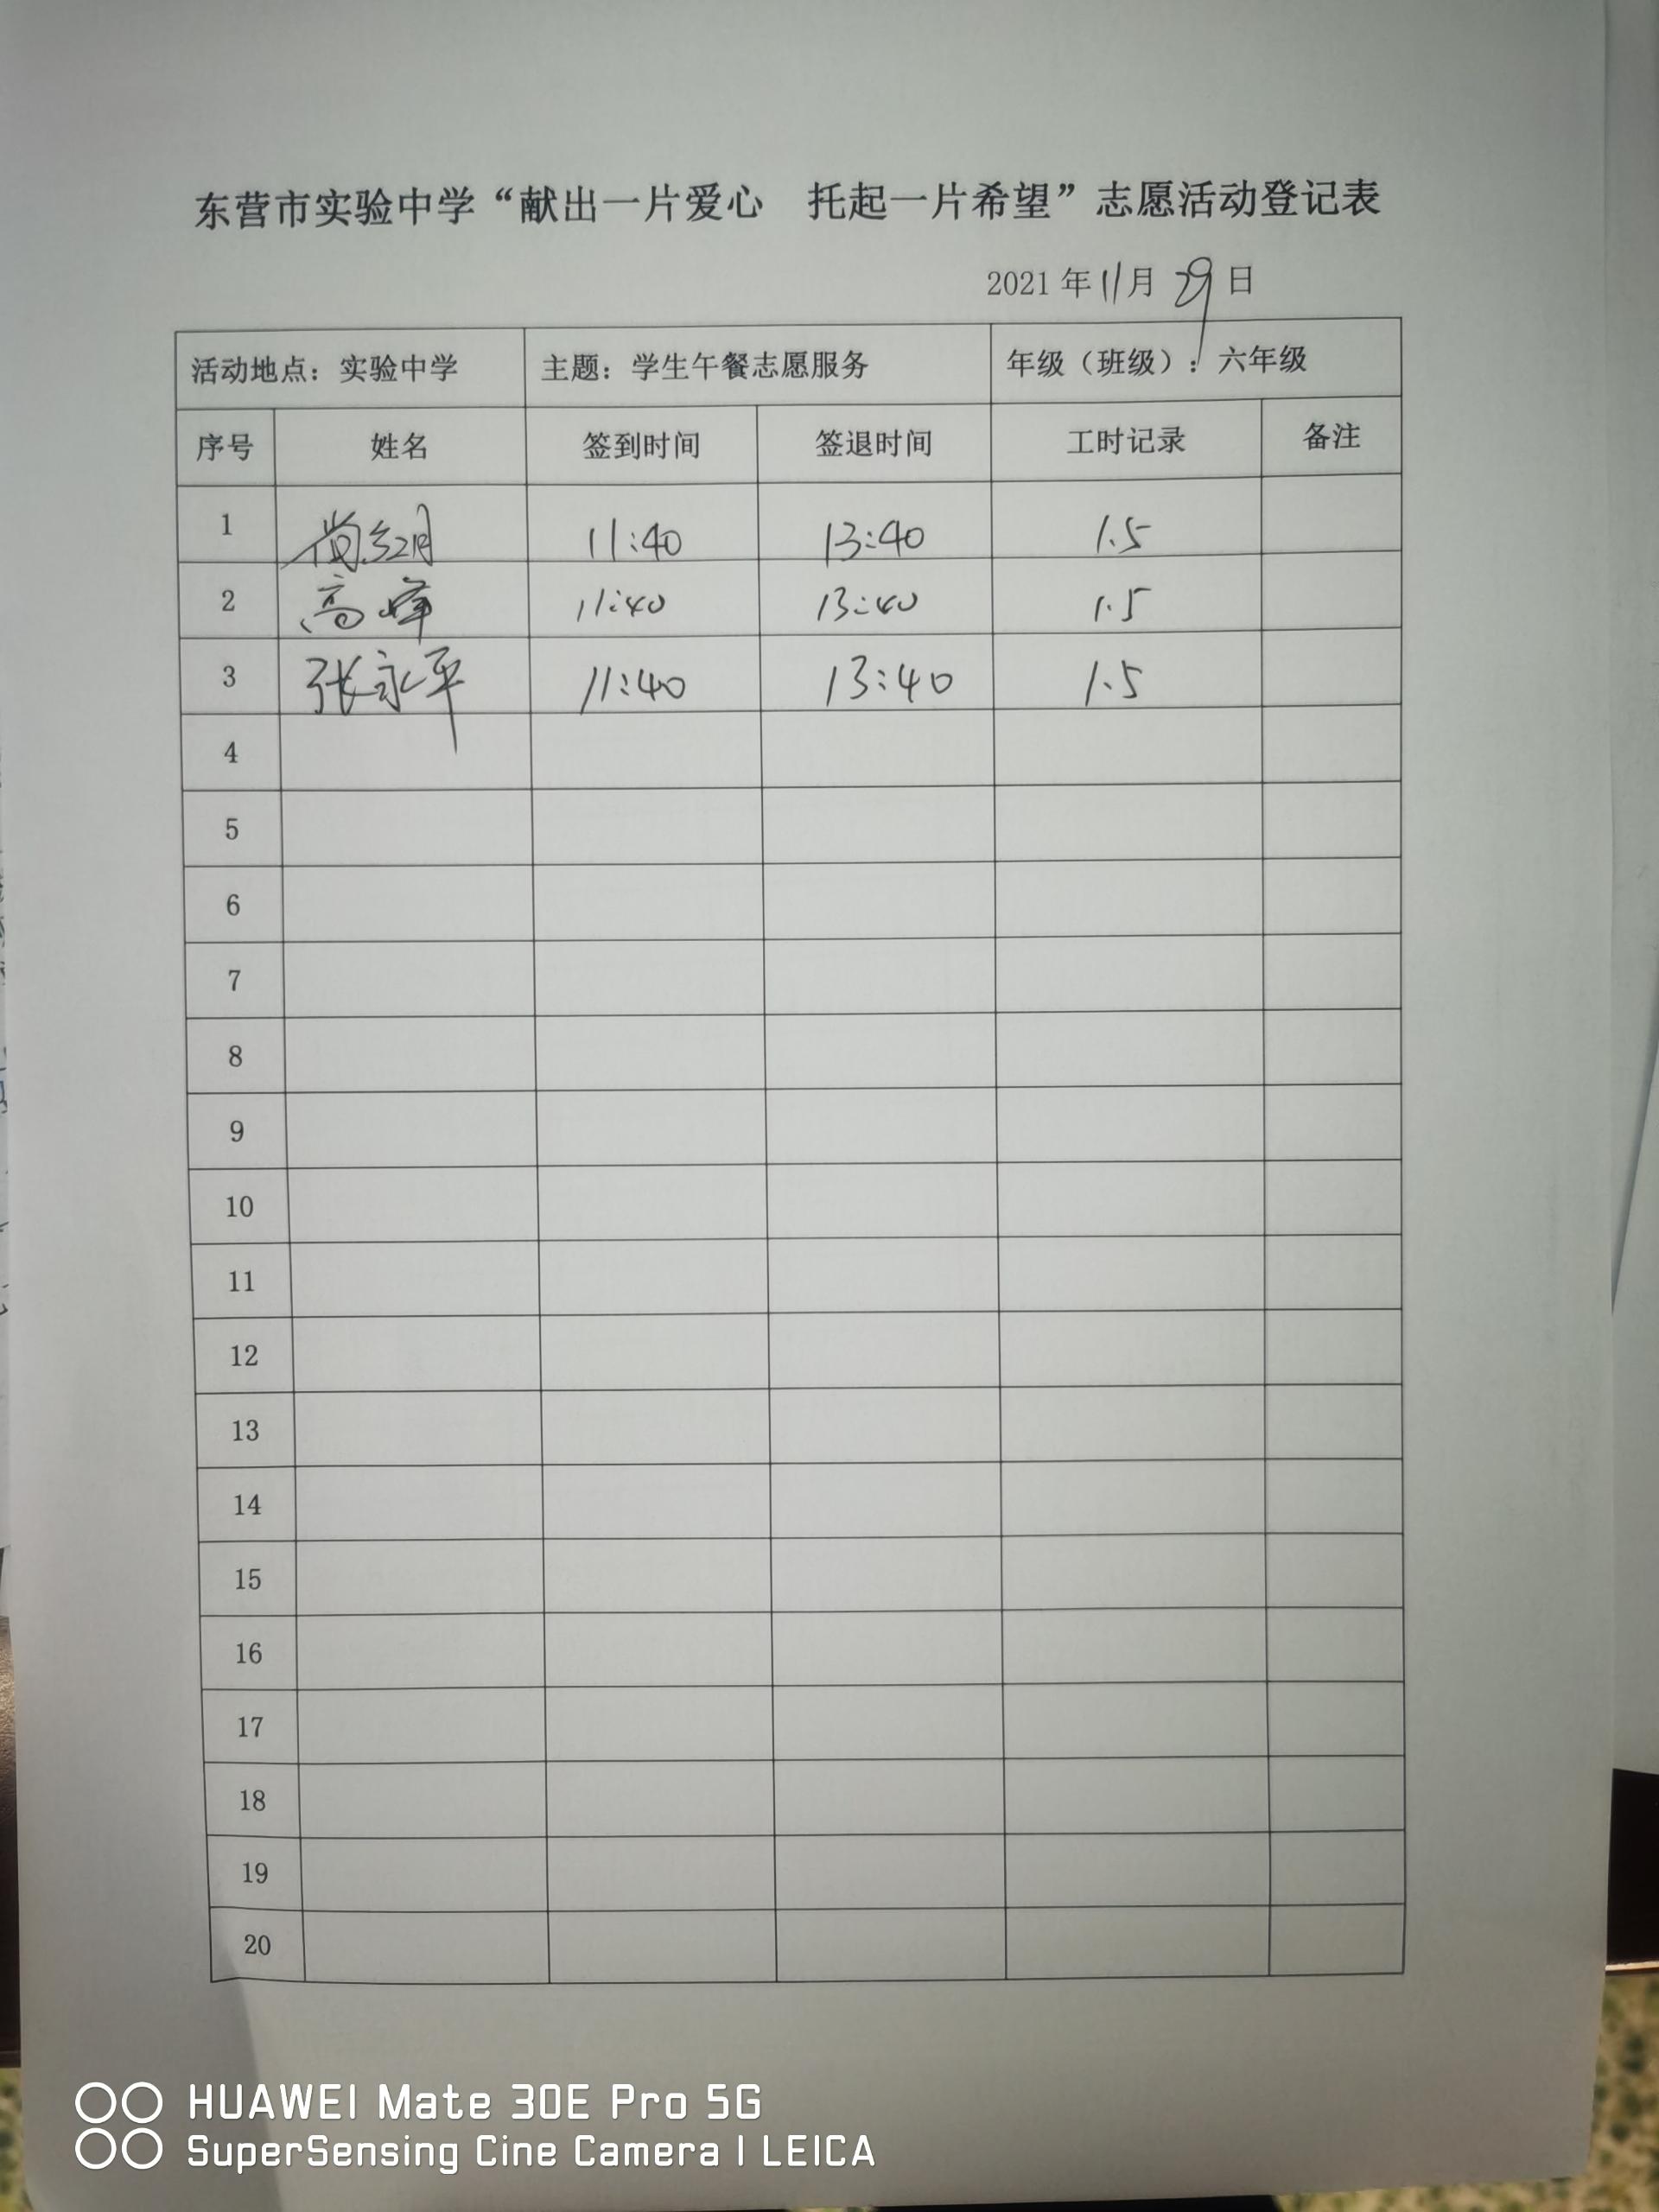 东营市实验中学“献出一片爱心 托起一片希望”志愿活动登记表
2021 年 11 月 29 日
活动地点：实验中学 主题：学生午餐志愿服务 年级（班级）：六年级
序号 姓名 签到时间 签退时间 工时记录 备注
1 11:40 13:40 1.5
2 高峰 11:40 13:40 1.5
3 张永平 11:40 13:40 1.5
4
5
6
7
8
9
10
11
12
13
14
15
16
17
18
19
20
HUAWEI Mate 30E Pro 5G
SuperSensing Cine Camera | LEICA